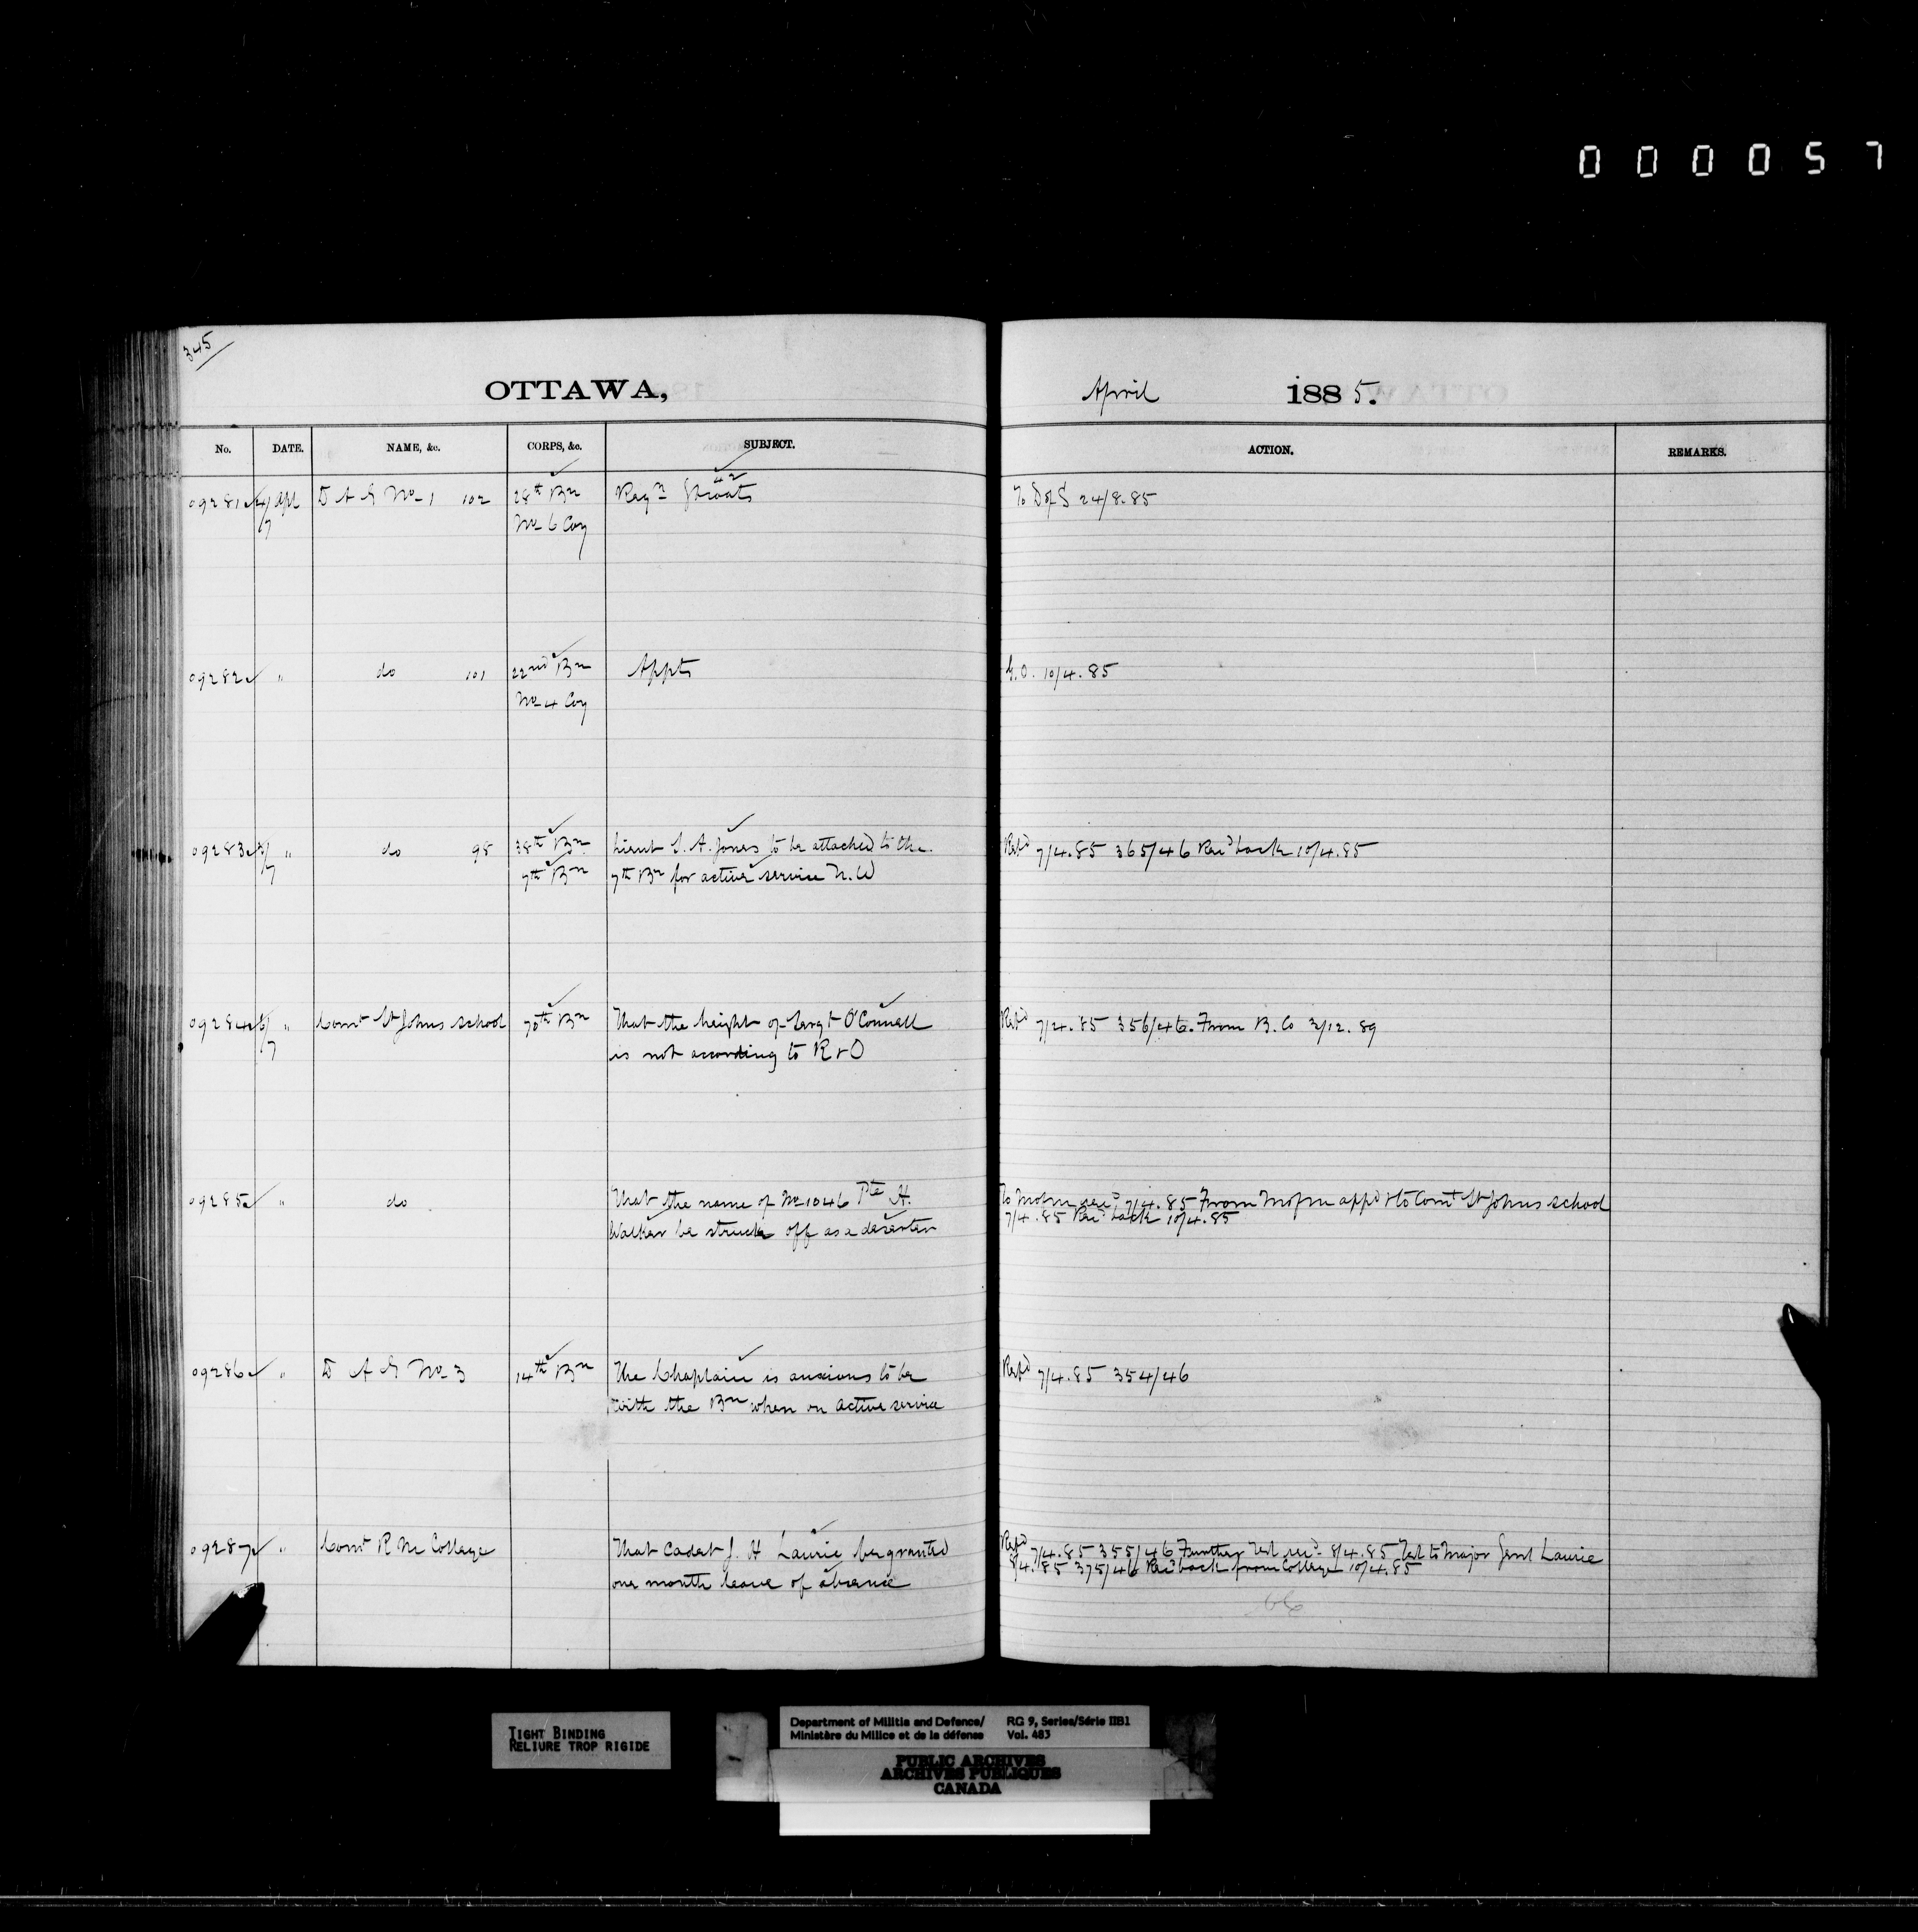 000057
345
OTTAWA, April 1885.
No. DATE. NAME, &c. CORPS, &c. SUBJECT. ACTION. REMARKS.
09281 4/7 Apl D A G No 1 102 28th Bn Reqn 42 To D of S 24/8.85
No 6 Coy
09282 " do 101 22nd Bn Appts G.O. 10/4.85
No 4 Coy
09283 3/7 " do 98 38th Bn Lieut S. A. Jones to be attached to the Repd 7/4.85 365/46 Recd back 10/4.85
7th Bn 7th Bn for active service N.W
09284 6/7 " Comt St Johns school 70th Bn That the height of Sergt O'Connell Repd 7/4.85 356/46. From B. Co 3/12.89
is not according to R & O
09285 " do That the name of No 1046 Pte H. To M of M 7/4.85 From M of M appd & to Comt St Johns school
Walker be struck off as a deserter 7/4.85 Recd back 10/4.85
09286 " D A G No 3 14th Bn The Chaplain is anxious to be Repd 7/4.85 354/46
with the Bn when on active service
09287 " Comt R M College That Cadet J. H Laurie be granted Repd 7/4.85 355/46 Further Tel recd 8/4.85 Tel to Major Genl Laurie
one month leave of absence 8/4.85 375/46 Recd back from College 10/4.85
66
TIGHT BINDING
RELIURE TROP RIGIDE
Department of Militia and Defence/ RG 9, Series/Série IIB1
Ministère du Milice et de la défense Vol. 483
PUBLIC ARCHIVES
ARCHIVES PUBLIQUES
CANADA